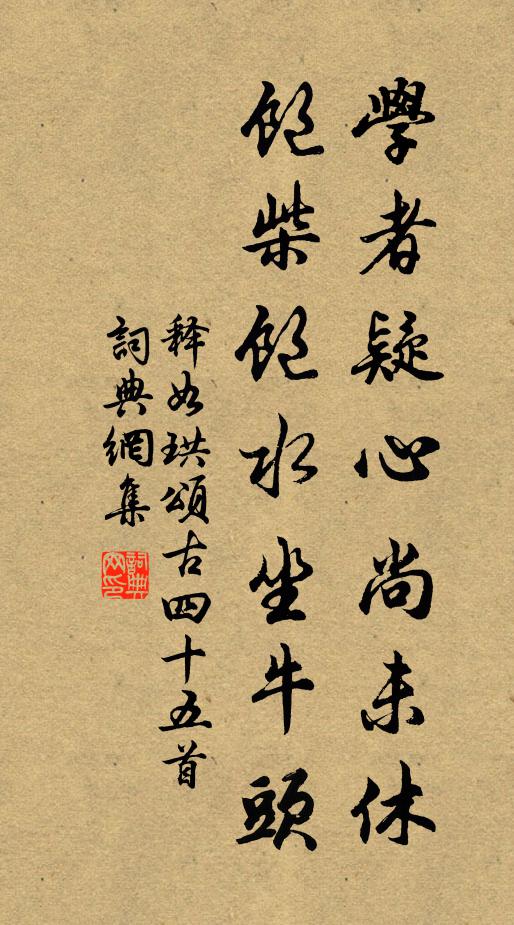 學者疑心尚未休
飽柴飽水坐牛頭
释如珙頌古四十五首
詞典網集
詞典网印